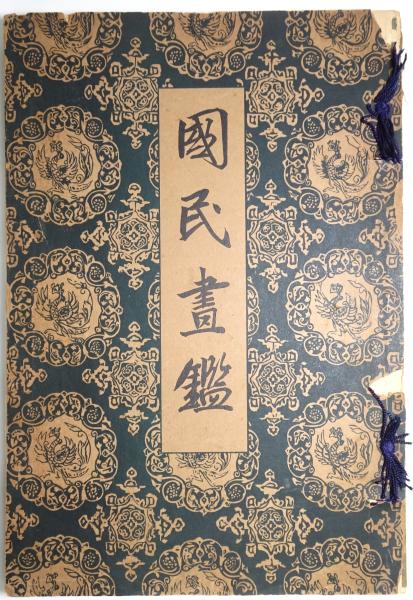 國民畫鑑